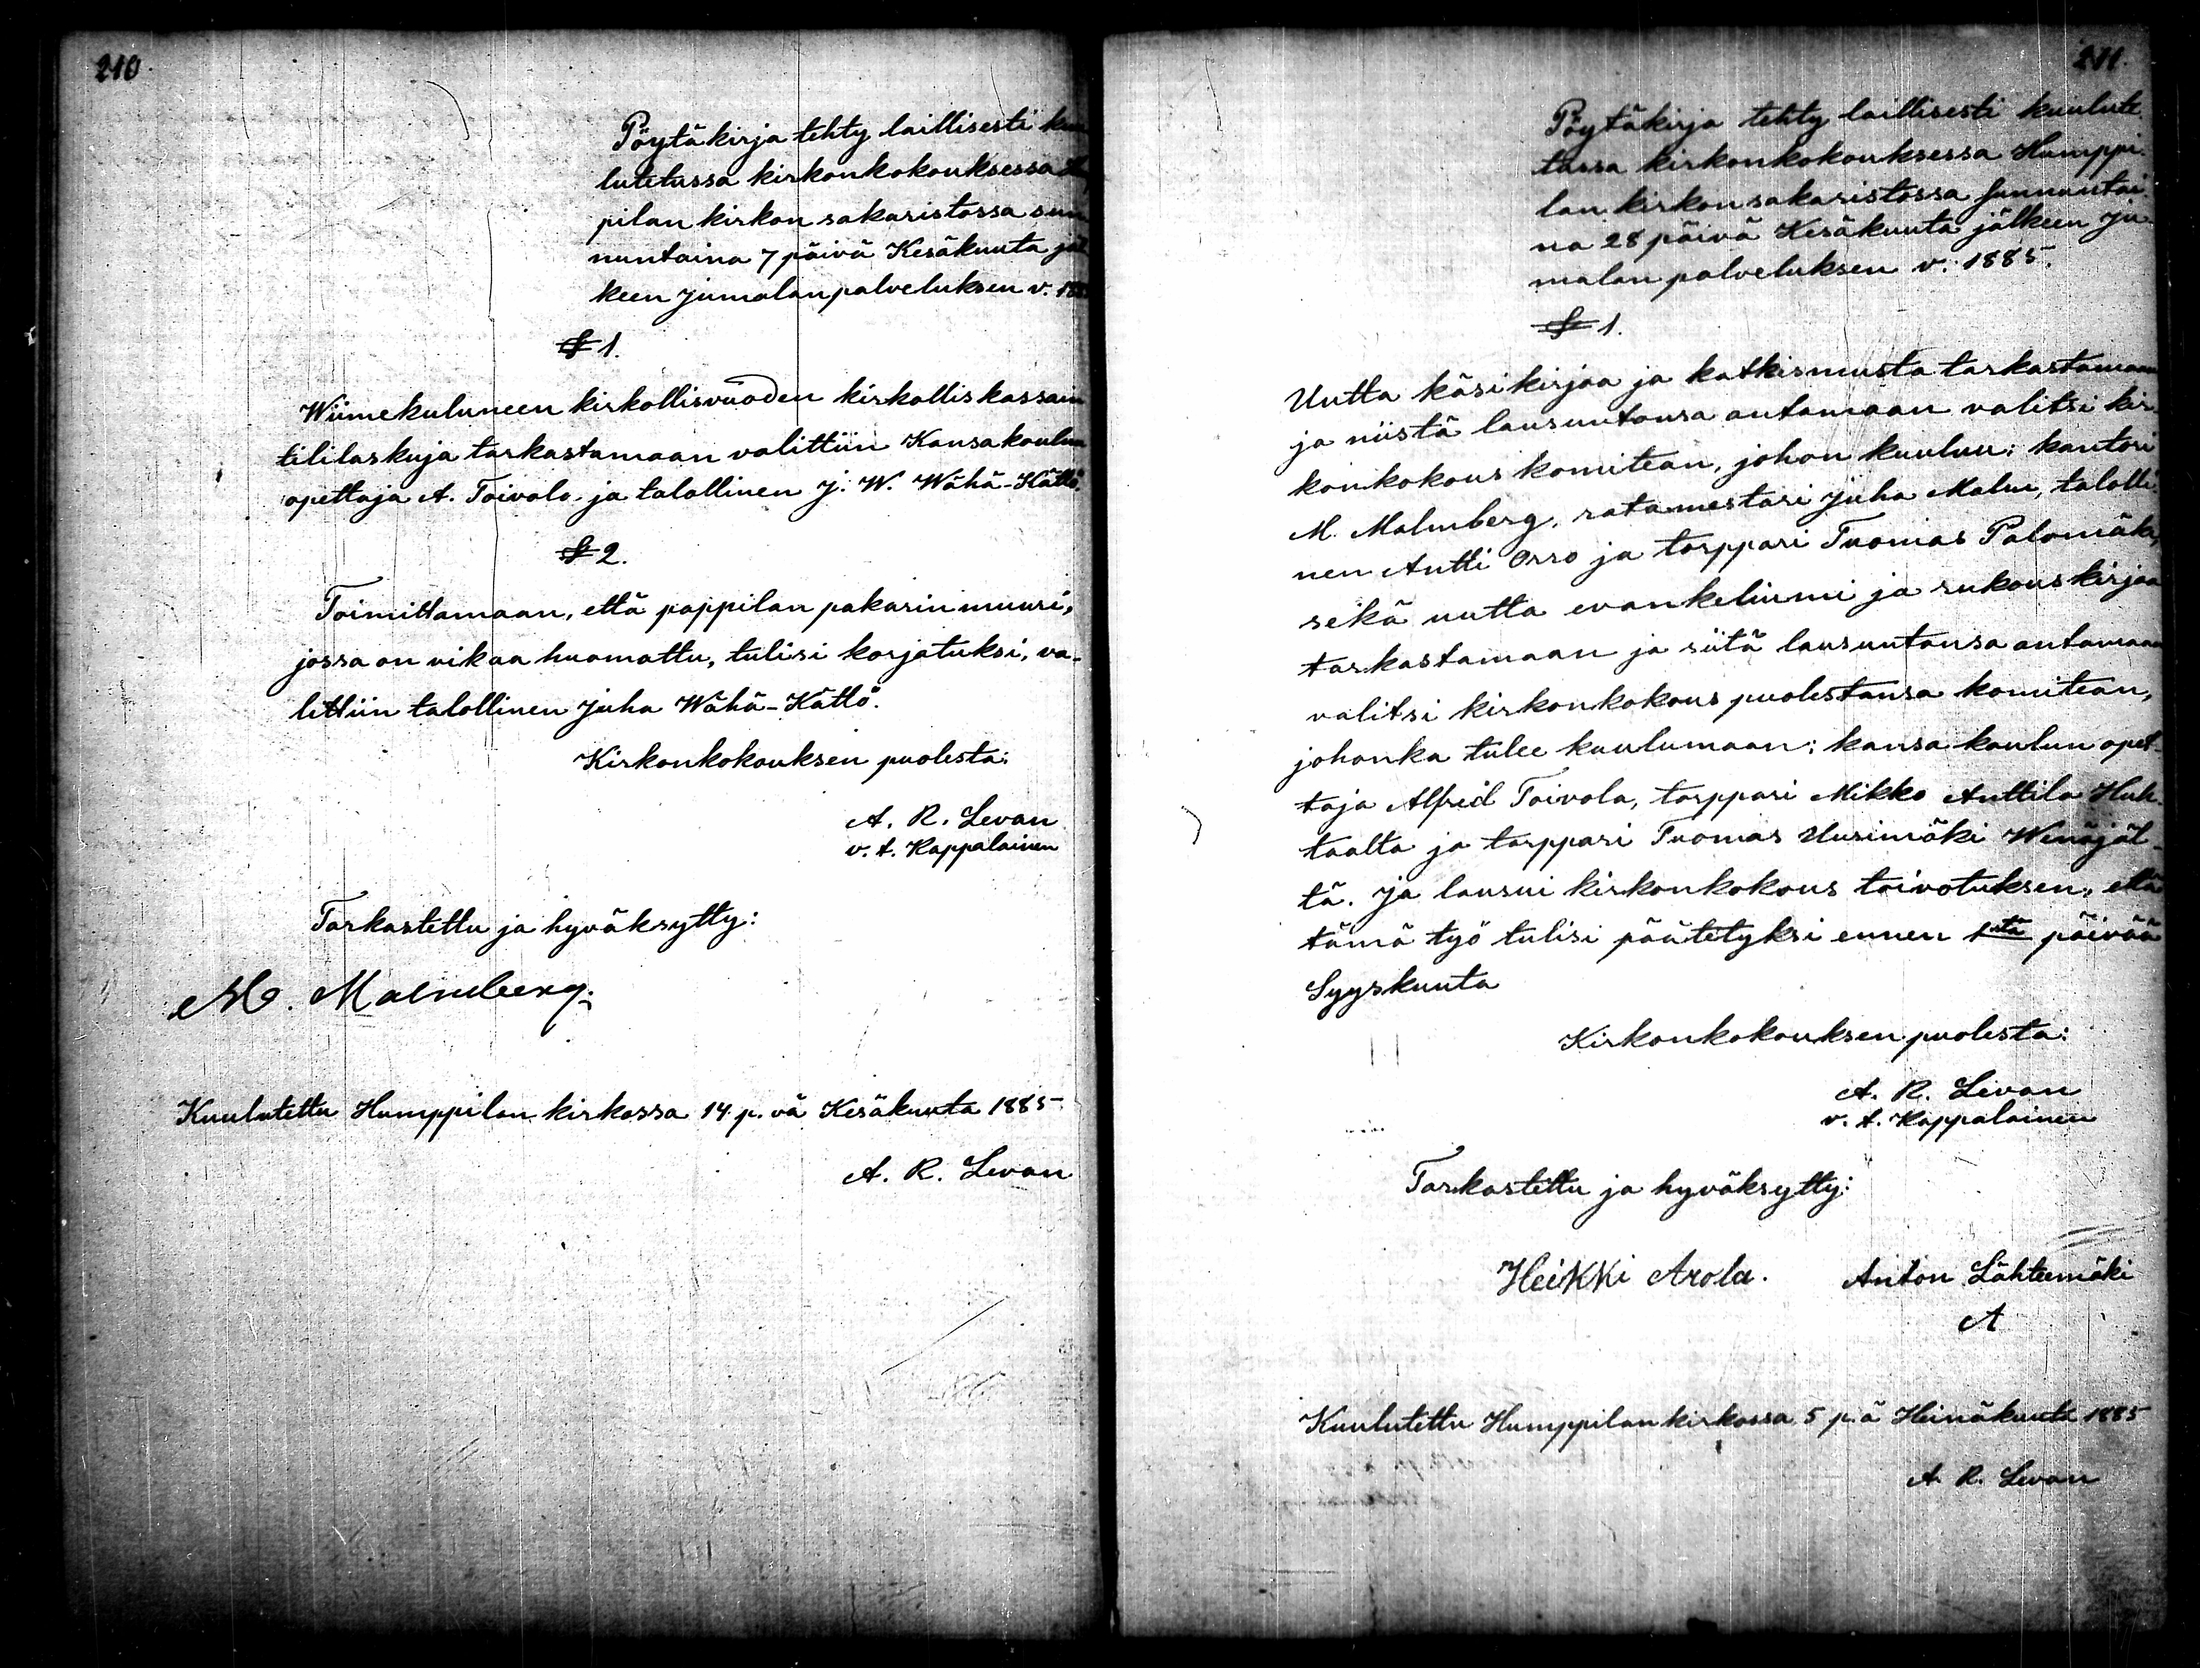 210
Pöytäkirja tehty laillisesti kuu
lutetussa kirkonkokouksessa
pilan kirkon sakaristossa sun
nuntaina 7 päivä Kesäkuuta jäl
keen jumalanpalveluksen v. 188
§ 1.
Wiimekuluneen kirkollisvuoden kirkolliskassain
tililaskuja tarkastamaan valittiin Kansakoulun
opettaja A. Toivola ja talollinen J. W. Wähä-Kättö.
§ 2.
Toimittamaan, että pappilan pakarin muuri,
jossa on vikaa huomattu, tulisi korjatuksi, va-
littiin talollinen Juha Wähä-Kättö.
Kirkonkokouksen puolesta:
A. R. Levan
v. t. Kappalainen
Tarkastettu ja hyväksytty:
M. Malmberg.
Kuulutettu Humppilan kirkossa 14 p. vä Kesäkuuta 1885.
A. R. Levan
211.
Pöytäkirja tehty laillisesti kuulute
tussa kirkonkokouksessa Humppi-
lan kirkon sakaristossa sunnuntai-
na 28 päivä Kesäkuuta jälkeen ju-
malanpalveluksen v. 1885.
§ 1.
Uutta käsikirjaa ja katkismusta tarkastamaan
ja niistä lausuntonsa antamaan valitsi kir-
konkokous komitean, johon kuuluu: kantori
M. Malmberg, ratamestari Juha Malm, talolli-
nen Antti Orro ja torppari Tuomas Palomäki,
sekä uutta evankeliumi ja rukouskirjaa
tarkastamaan ja siitä lausuntonsa antamaan
valitsi kirkonkokous puolestansa komitean,
johonka tulee kuulumaan: kansa koulun opet-
taja Alfrid Toivola, torppari Mikko Anttila Huh-
taalta ja torppari Tuomas Uusimäki Wenäjäl-
tä. Ja lausui kirkonkokous toivotuksen, että
tämä työ tulisi päätetyksi ennen 1stä päivää
Syyskuuta
Kirkonkokouksen puolesta:
A. R. Levan
v. t. Kappalainen
Tarkastettu ja hyväksytty:
Heikki Arola. Anton Lähteemäki
A
Kuulutettu Humppilan kirkossa 5 p.ä Heinäkuuta 1885
A. R. Levan